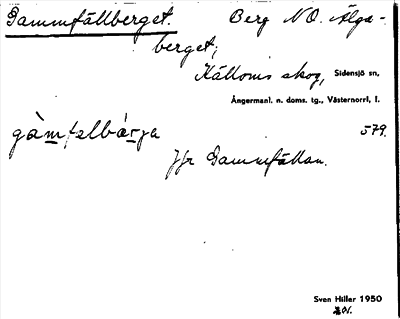 Gammfällberget. Berg NO. Älga-
berget,
Källoms skog, Sidensjö sn,
Ångermanl. n. doms. tg., Västernorrl. l.
gàmfelbárja 579.
Jfr Gammfällan.
Sven Hiller 1950